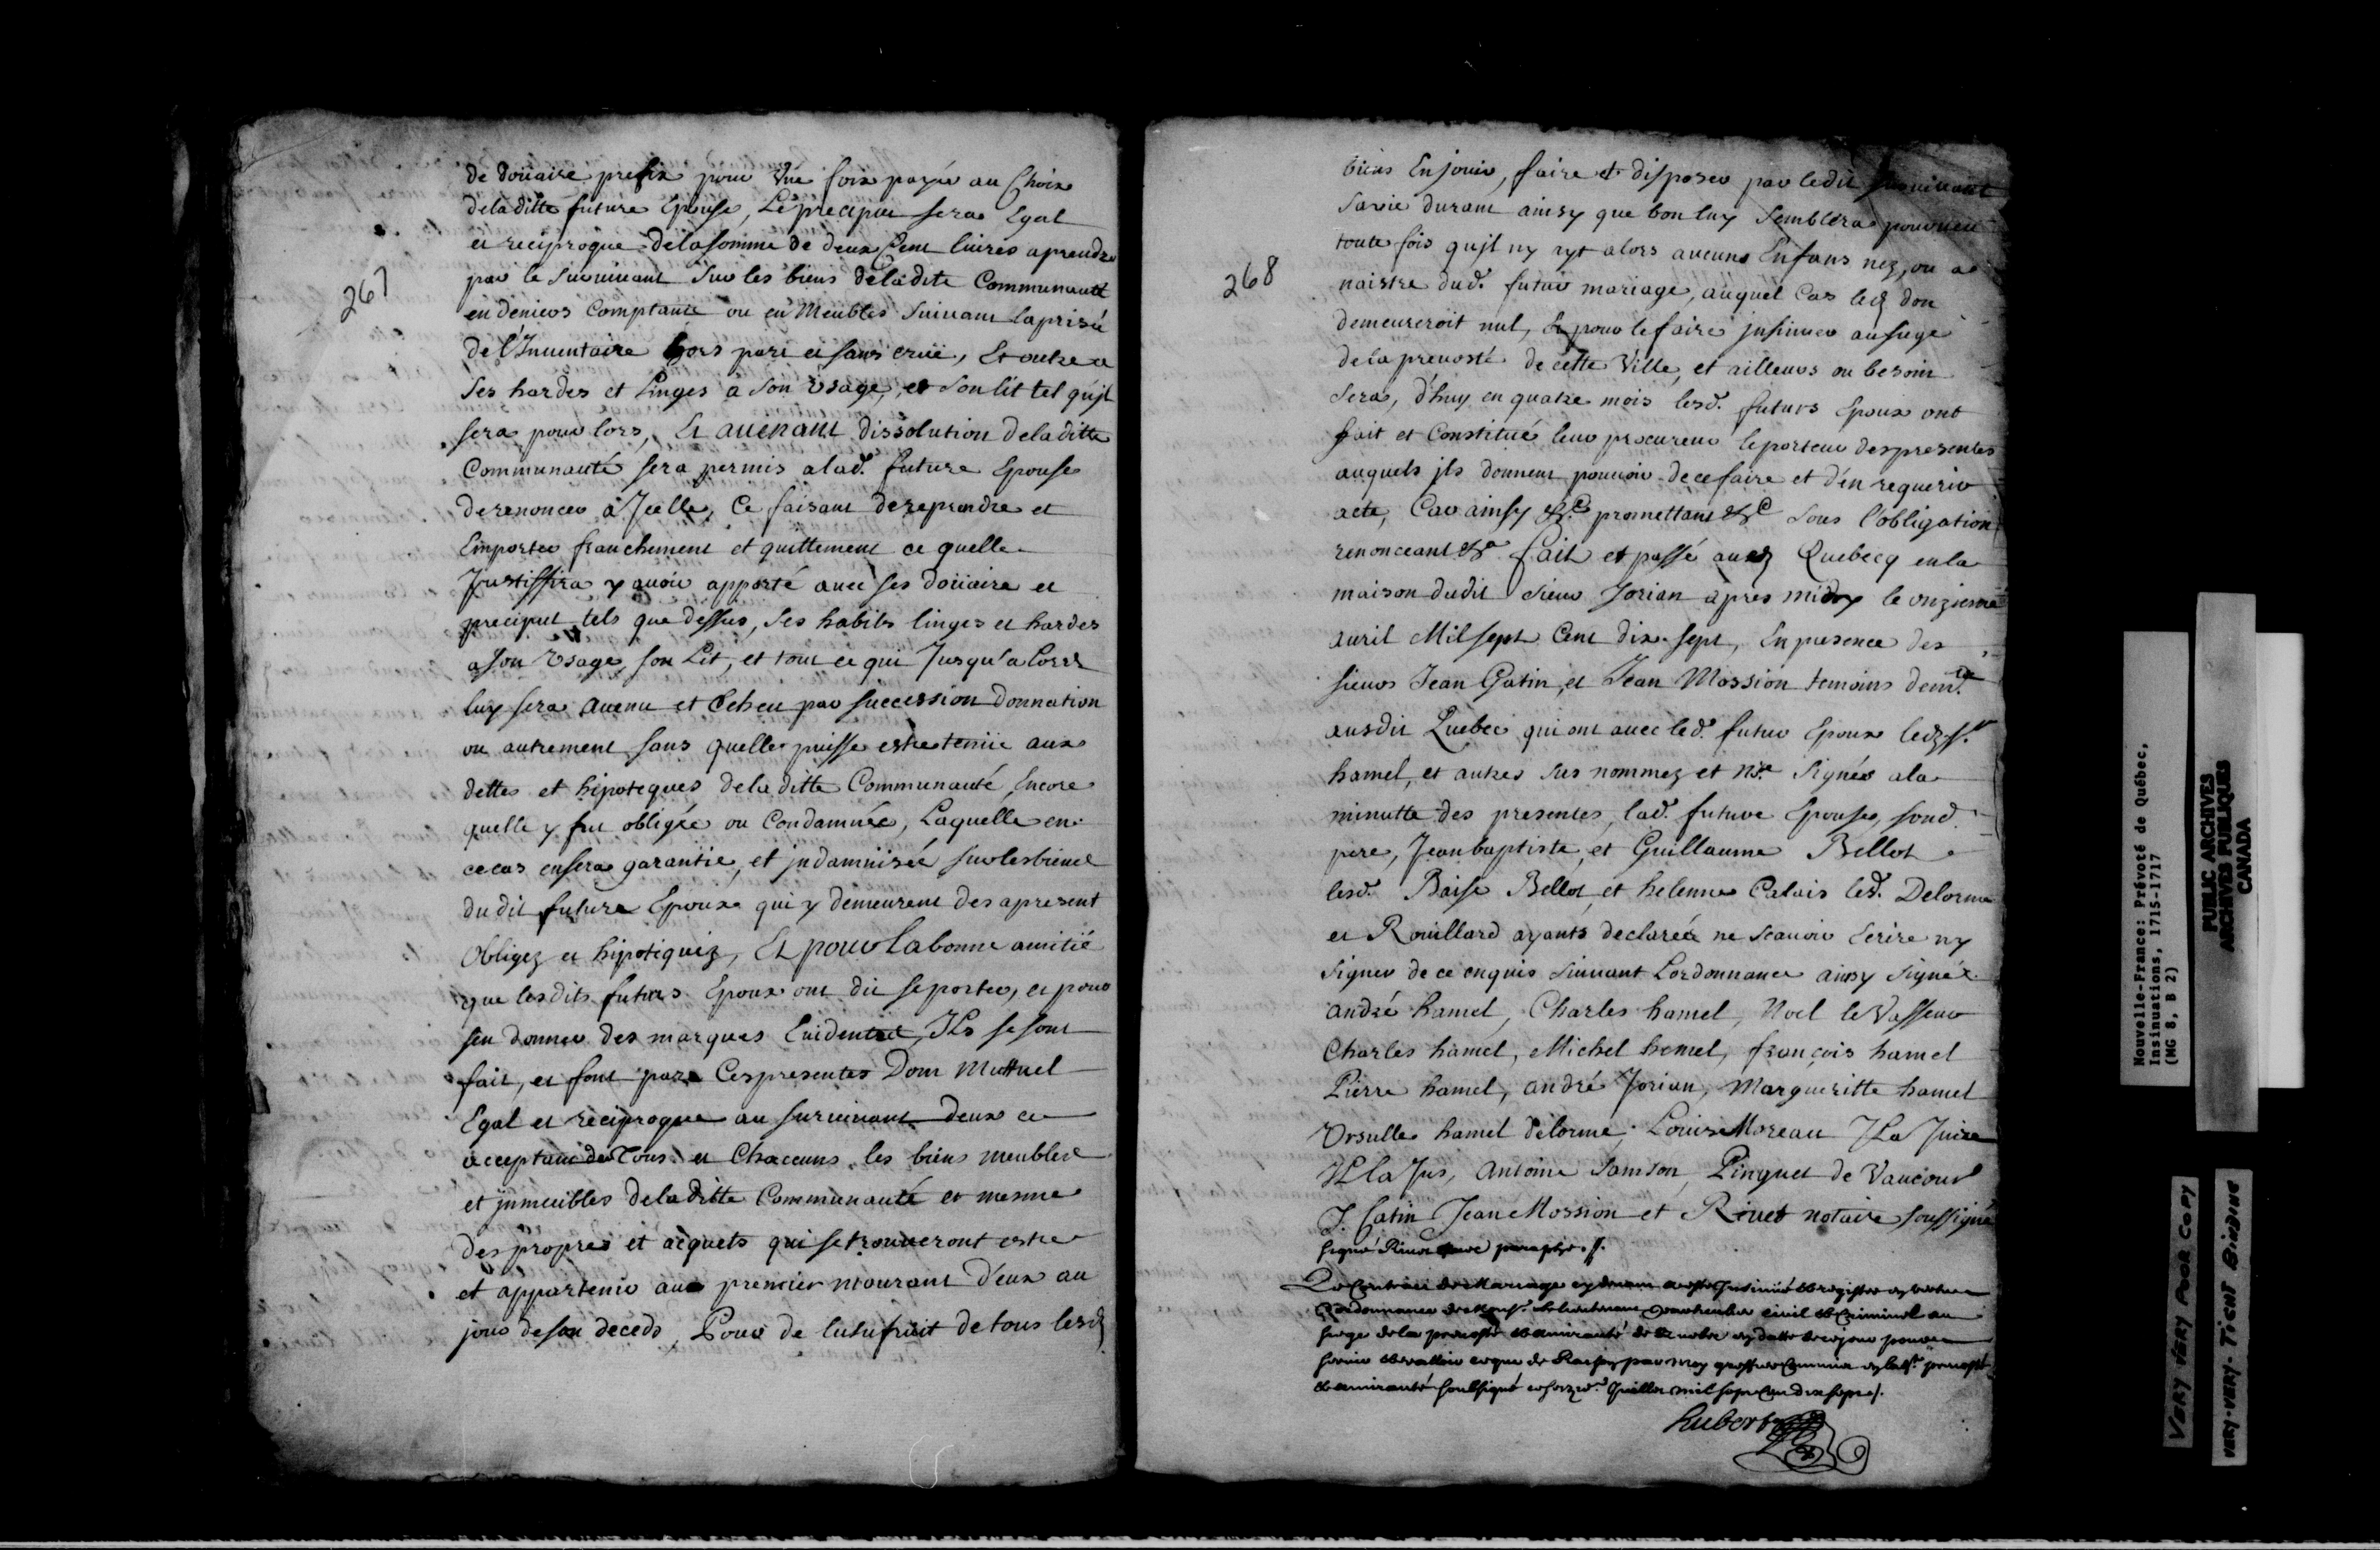 267
de doüaire prefix pour Une fois payée au Choix
de la ditte future Epouse, Le preciput sera Egal
et reciproque de la somme de deux Cent livres a prendre
par le Survivant Sur les biens de la dite Communauté
en deniers Comptants ou en Meubles Suivant la prisée
de l'Inventaire hors part et sans crüe, Et outre a
Ses hardes et Linges a Son Usage, et Son lit tel qu'jl
sera pour lors, Et avenant dissolution de la ditte
Communauté sera permis a lad. future Epouse
de renoncer à Jcelle, Ce faisant de reprendre et
Emporter franchement et quittement ce quelle
Justiffira y avoir apporté avec ses doüaire et
preciput tels que dessus, Ses habits linges et hardes
a Son Usage, son Lit, et tout ce qui Jusqu'a lors
luy sera avenu et Echeu par succession donnation
ou autrement sans quelle puisse estre tenüe aux
dettes et hipoteques de la ditte Communauté, Encore
quelle y fut obligée ou Condamnée, Laquelle en
ce cas en sera garantie, et jndamnisée sur les biens
du dit future Epoux qui y demeurent des apresent
Obligez et hipotequez, Et pour la bonne amitié
que lesdits futurs Epoux ont dit se porter, et pour
sen donner des marques Evidentes, JLs se sont
fait, et font par Ces presentes Dom Muttuel
Egal et reciproque au survivant deux ce
acceptant de Tous et Chaccuns les biens meubles
et jmmeubles de la ditte Communauté et mesme
des propres et acquets qui se trouveront estre
et appartenir au premier mourant D'eux au
jour de son decedz, Pour de lusufruit de tous lesd
268
biens En jouir, faire et disposer par le dit survivant
Sa vie durant ainsy que bon luy Semblera pourveu
toute fois qujl ny ayt alors aucuns Enfans nez, ou a
naistre dud. futur mariage, auquel Cas led don
demeureroit nul, Et pour le faire jnsinuer au siege
de la prevosté de cette Ville, et ailleurs ou besoin
Sera, d'huy en quatre mois lesd. futurs Epoux ont
fait et Constitué leur procureur le porteur des presentes
auquels jls donnent pouvoir de ce faire et d'en requerir
acte, Car ainsy &c promettant &c Sous l'obligation
renonceant &a fait et passé aud Quebecq en la
maison dudit Sieur Jorian apres midy le onzieme
avril Mil sept Cent dix-sept, En presence des
sieurs Jean Gatin, et Jean Mossion temoins demts
ausdit Quebec qui ont avec led. futur Epoux led sr
hamel, et autres Sus nommez et nre Signés a la
minutte des presentes, lad. future Epouse, sond
pere, Jean baptiste et Guillaume Bellot
lesd. Baise Bellot et helenne Calais led. Delorme
et Rouillard ayants declarés ne scavoir Ecrire ny
signer de ce enquis suivant Lordonnance ainsy Signés
andré hamel, Charles hamel, Noel le Vasseur
Charles hamel, Michel hamel, françois hamel
Pierre hamel, andré Jorian, Margueritte hamel
Ursulle hamel delorme, Louis Moreau
antoine Samson, Pinguet de Vaucour
J. Gatin Jean Mossion et Rivet notaire soussigné
signé Rivet avec paraphe.
Le Contrat de Mariage cy devant a esté Insinué et registré en vertu de
Lordonnance de Monsr le lieutenant particulier civil et Criminel au
siege de la prevosté et amirauté de Quebec en datte de ce jour pour
servir et valloir ce que de Raison par moy greffier Commis en lad. prevosté
et amirauté soussigné ce Juillet mil sept Cent dix sept.
hubert
Nouvelle-France: Prévoté de Québec,
Insinuations, 1715-1717
(MG 8, B 2)
PUBLIC ARCHIVES
ARCHIVES PUBLIQUES
CANADA
VERY VERY POOR COPY
VERY-VERY-TIGHT BINDING